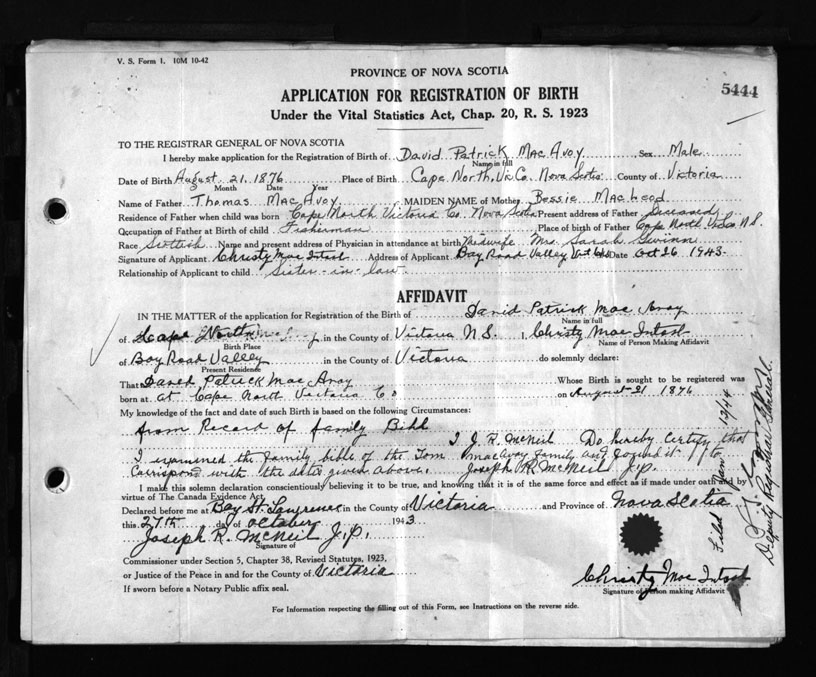 V. S. Form 1. 10M 10-42
5444
PROVINCE OF NOVA SCOTIA
APPLICATION FOR REGISTRATION OF BIRTH
Under the Vital Statistics Act, Chap. 20, R. S. 1923
TO THE REGISTRAR GENERAL OF NOVA SCOTIA
I hereby make application for the Registration of Birth of David Patrick MacAvoy Sex Male
Name in full
Date of Birth August 21. 1876 Place of Birth Cape North, Vic Co. Nova Scotia County of Victoria
Month Date Year
Name of Father Thomas MacAvoy MAIDEN NAME of Mother Bessie MacLeod
Residence of Father when child was born Cape North Victoria Co. Nova Scotia Present address of Father Deceased
Occupation of Father at Birth of child Fisherman Place of birth of Father Cape North N.S.
Race Scottish Name and present address of Physician in attendance at birth Midwife Mrs. Sarah
Signature of Applicant Christy Mac Intosh Address of Applicant Bay Road Valley Date Oct 26 1943
Relationship of Applicant to child Sister-in-law
AFFIDAVIT
IN THE MATTER of the application for Registration of the Birth of David Patrick Mac Avoy
Name in full
of Cape North in the County of Victoria N.S. I, Christy Mac Intosh
Birth Place Name of Person Making Affidavit
of Bay Road Valley in the County of Victoria do solemnly declare:
Present Residence
That David Patrick Mac Avoy Whose Birth is sought to be registered was
born at at Cape North Victoria Co on August 21 1876
My knowledge of the fact and date of such Birth is based on the following Circumstances:
from Record of family Bible
I J. R. McNeil Do hereby certify that
I examined the family bible of the Tom MacAvoy family and found it to
Correspond with the dates given above. Joseph R. McNeil J.P.
I make this solemn declaration conscientiously believing it to be true, and knowing that it is of the same force and effect as if made under oath and by
virtue of The Canada Evidence Act.
Declared before me at Bay St. Lawrence in the County of Victoria and Province of Nova Scotia
this 27th day of October 1943
Joseph R. McNeil J.P.
Signature of
Commissioner under Section 5, Chapter 38, Revised Statutes, 1923,
or Justice of the Peace in and for the County of Victoria
If sworn before a Notary Public affix seal.
Christy Mac Intosh
Signature of Person making Affidavit
For Information respecting the filling out of this Form, see Instructions on the reverse side.
Filed Jan 13/44
Deputy Registrar General.